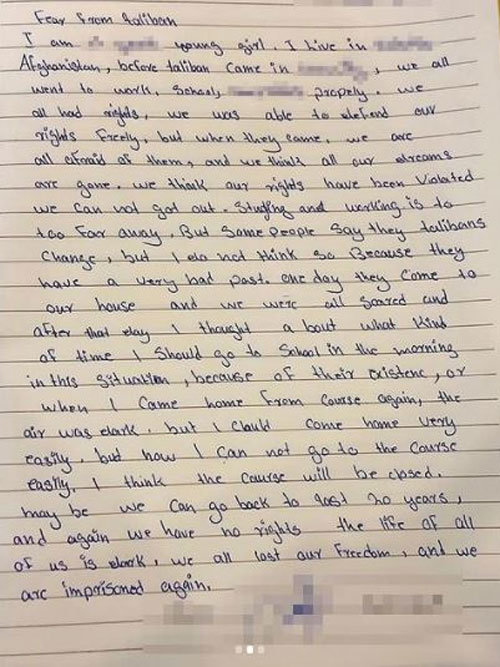 Fear from taliban
I am young girl. I live in
Afghanistan, before taliban came in , we all
went to work, school, propely. we
all had rights, we was able to defend our
rights freely, but when they came, we are
all afraid of them, and we think all our dreams
are gone. we think our rights have been violated
we can not got out. Studing and working is to
too far away. But some people say they talibans
change, but I do not think so Because they
have a very bad past. one day they come to
our house and we were all scared and
after that day I thought a bout what kind
of time I should go to school in the morning
in this situation, because of their existenc, or
when I came home from course again, the
air was dark. but I could come home very
easily. but now I can not go to the course
easily. I think the course will be closed.
may be we can go back to last 20 years,
and again we have no rights the life of all
of us is dark, we all lost our freedom, and we
are imprisoned again.